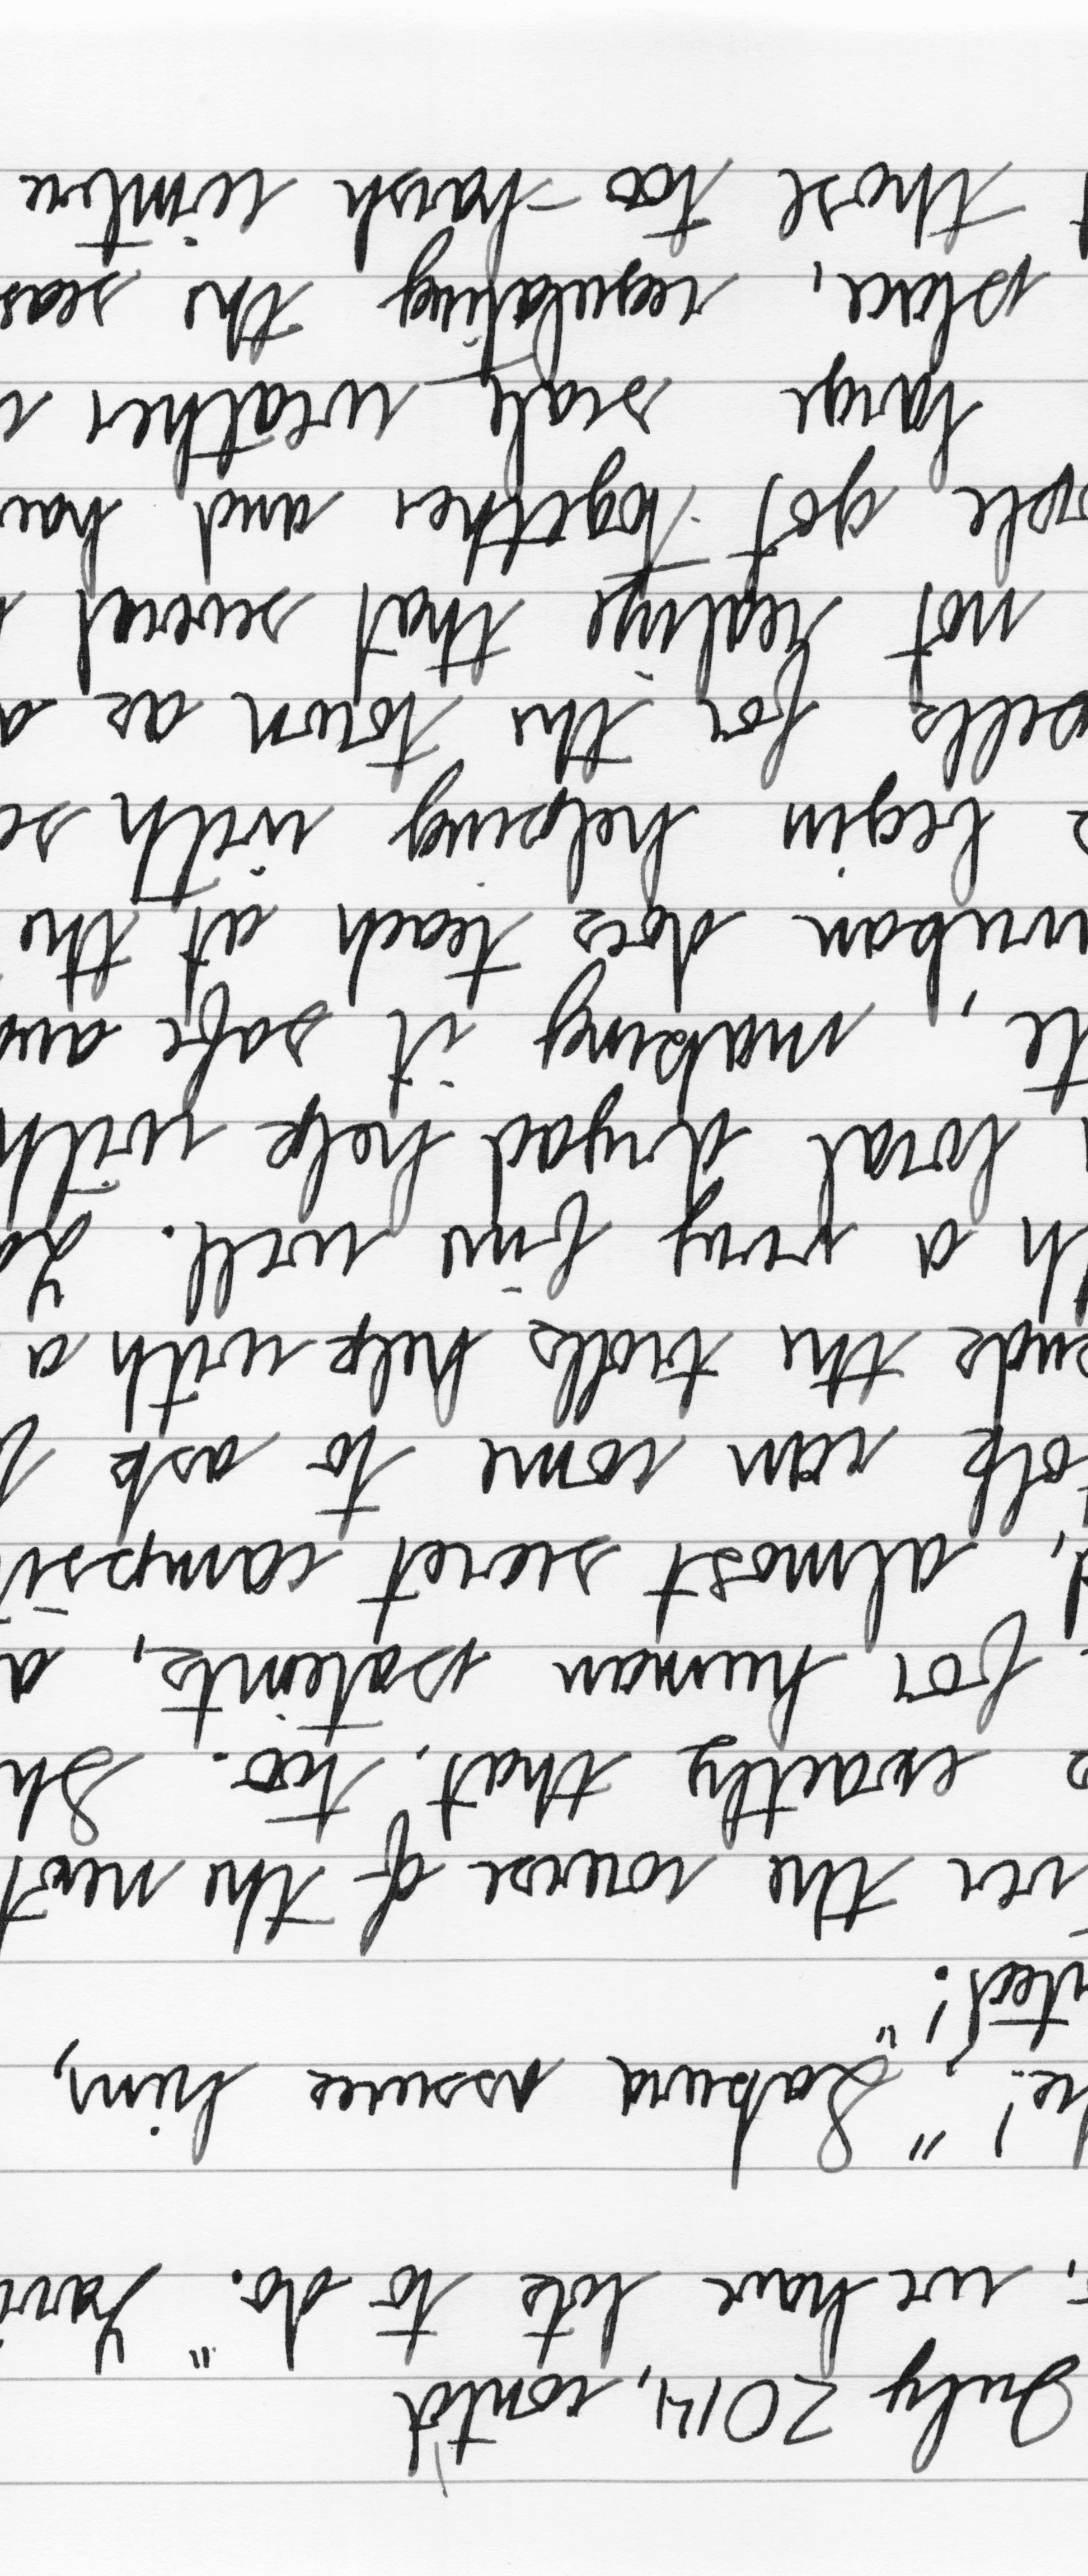 July 2014, cont'd
, we have lots to do."
ke!" Sakura assures him,
nted!"
ver the course of the next
s exactly that, too. Sh
for human patients, a
d, almost secret campsit
olk can come to ask f
ends the trolls help with a
th a very fine well. La
local dryad help with
te, making it safe and
does teach at the
s begin helping with se
pells for the town as a
not realize that several
ople got together and hav
large scale weather
place, regulating the seas
those too-harsh winte